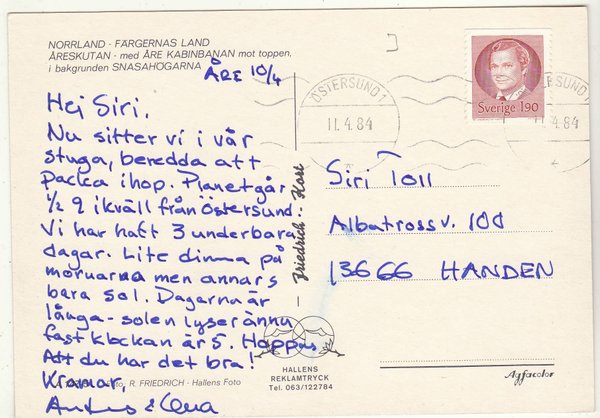 NORRLAND - FÄRGERNAS LAND
ÅRESKUTAN - med ÅRE KABINBANAN mot toppen,
i bakgrunden SNASAHÖGARNA
ÅRE 10/4
Hej Siri,
Nu sitter vi i vår
stuga, beredda att
packa ihop. Planet går
1/2 9 ikväll från Östersund.
Vi har haft 3 underbara
dagar. Lite dimma på
morgnarna men annars
bara sol. Dagarna är
långa - solen lyser ännu
fast klockan är 5. Hoppas
Att du har det bra!
Kramar,
& Lena
R. FRIEDRICH - Hallens Foto
Friedrich:s Kort
HALLENS
REKLAMTRYCK
Tel. 063/122784
ÖSTERSUND 1
11.4.84
Sverige 190
ÖSTERSUND 1
11.4.84
Siri Toll
Albatrossv. 100
13666 HANDEN
Agfacolor